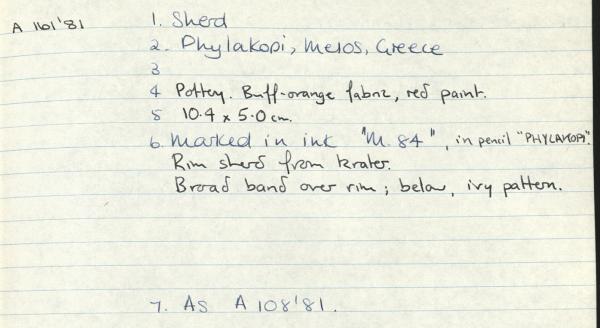 A 161'81
1. Sherd
2. Phylakopi, Melos, Greece
3
4 Pottery. Buff-orange fabric, red paint.
5 10.4 x 5.0 cm.
6. Marked in ink "M. 84", in pencil "PHYLAKOPI".
Rim sherd from krater.
Broad band over rim; below, ivy pattern.
7. AS A 108'81.